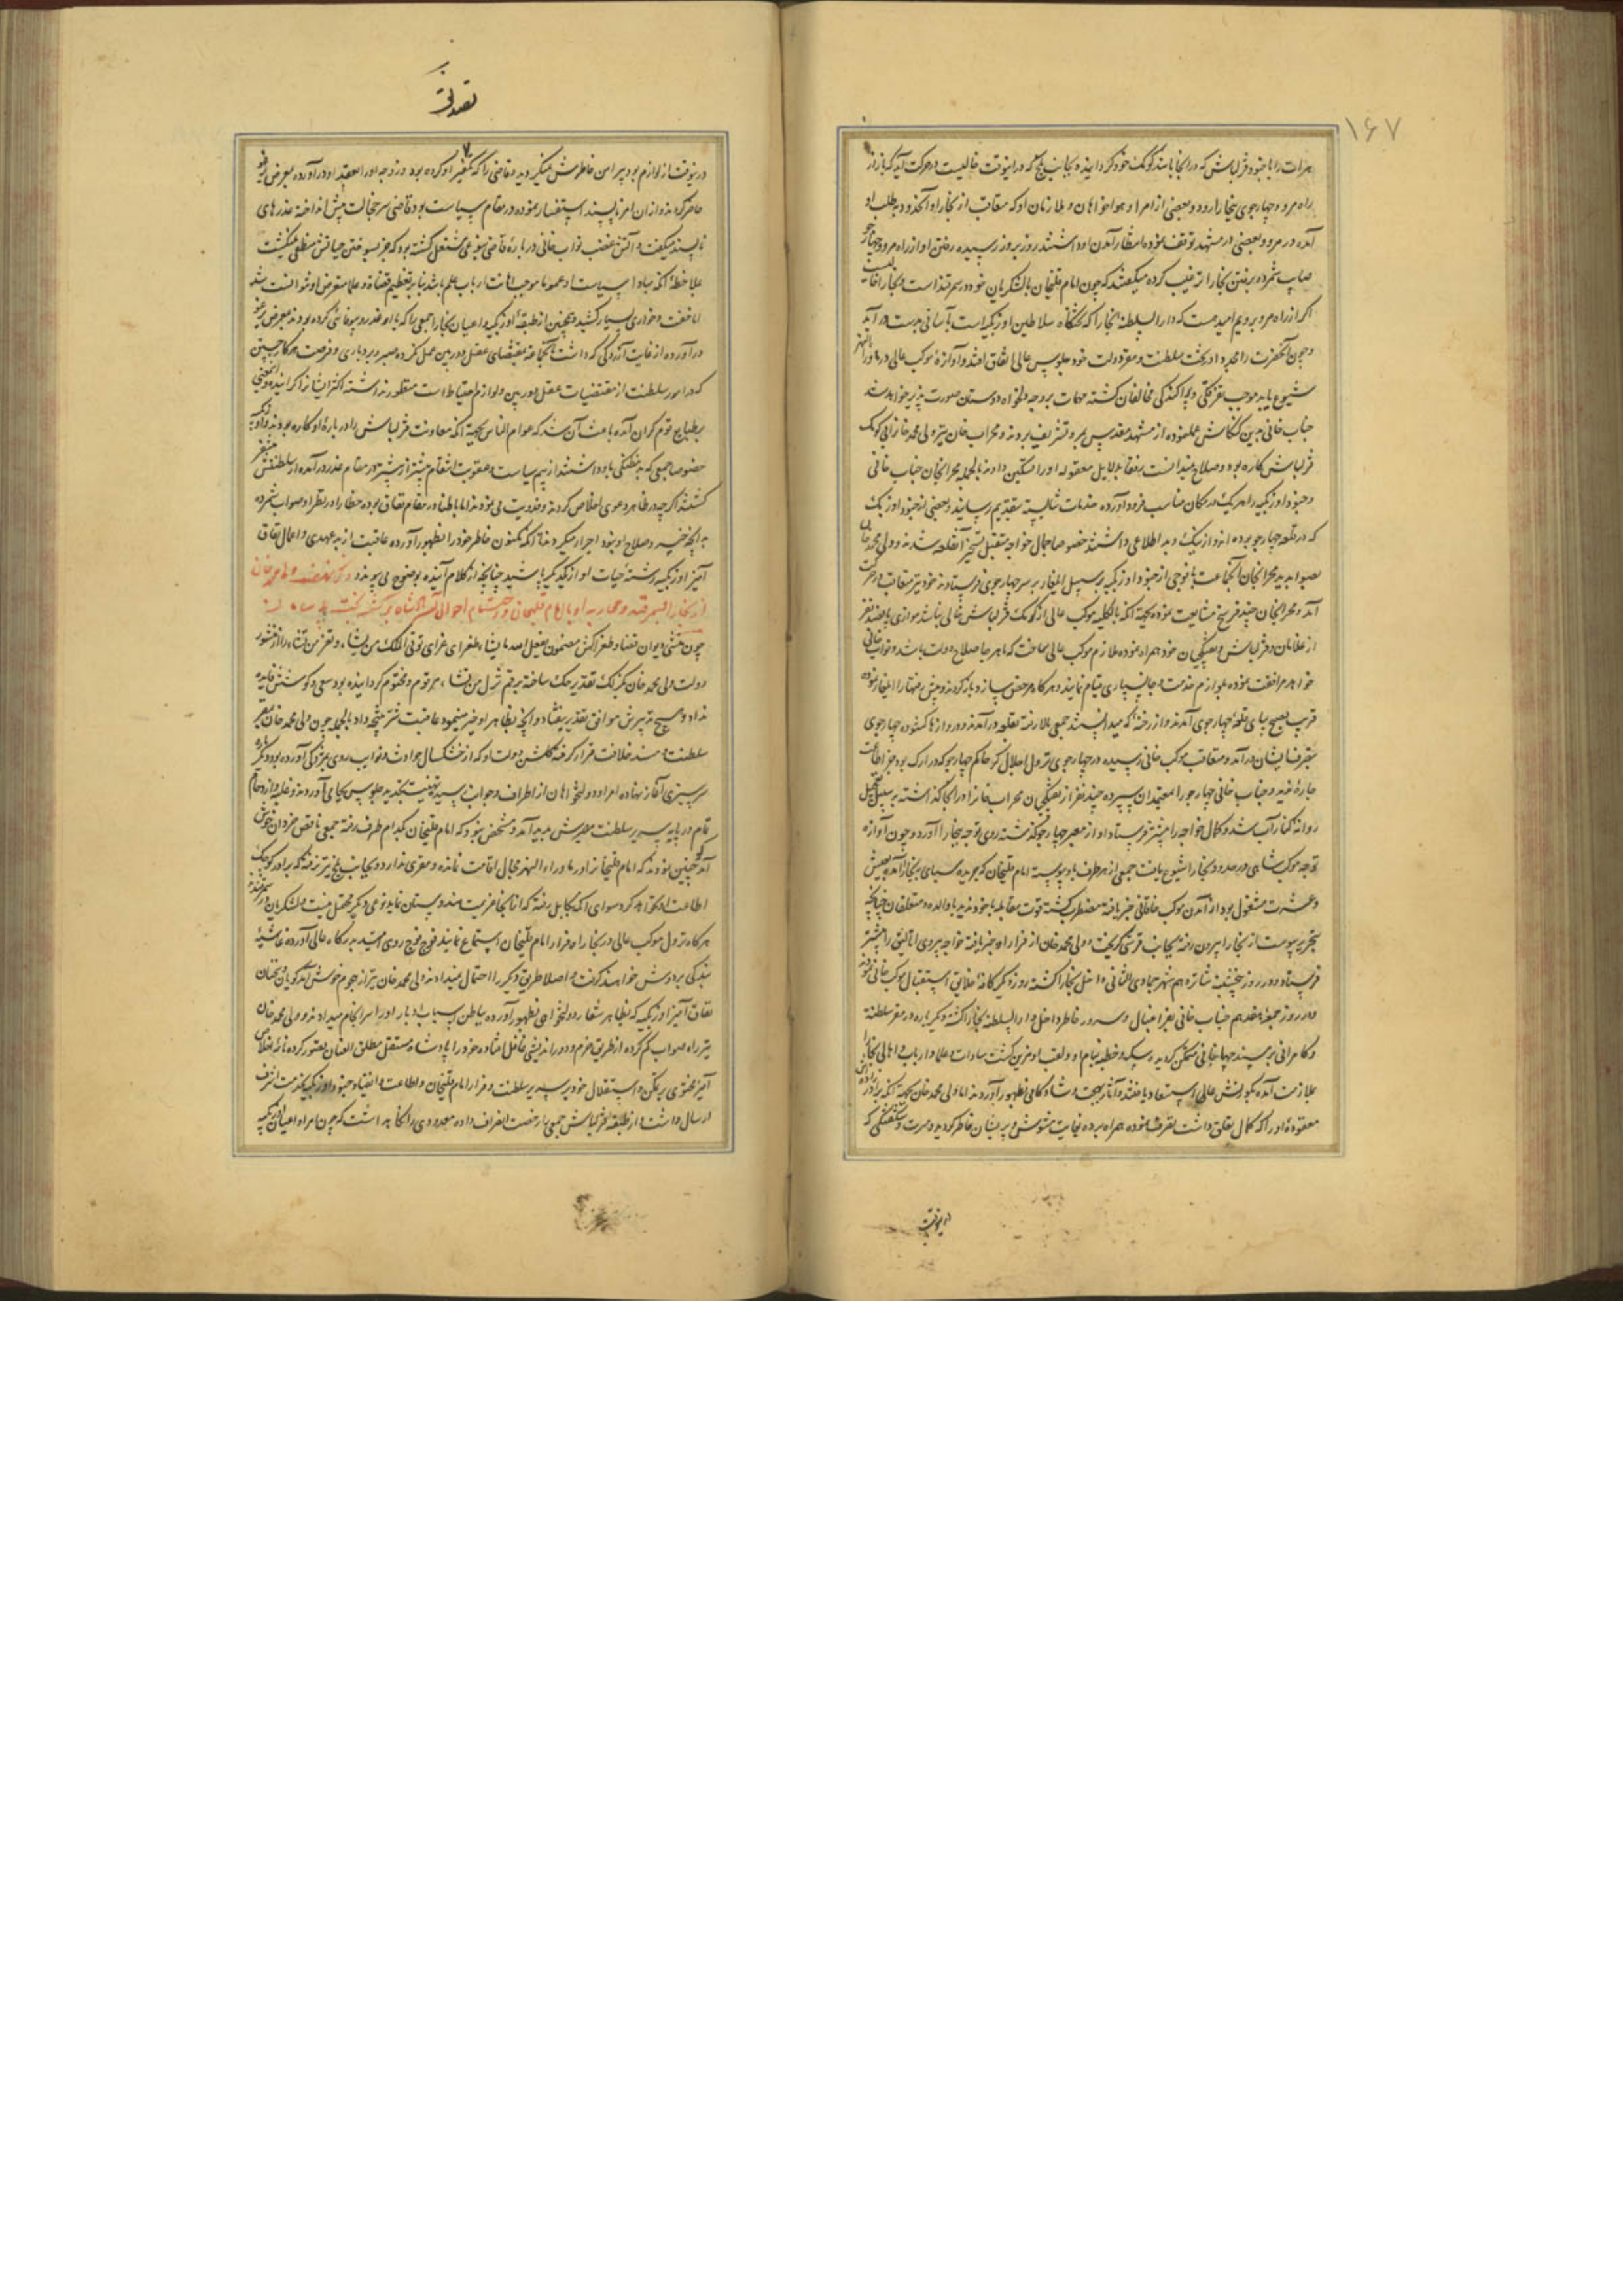 ۱۶۷
هرات را با جنود قزلباش که در آنجا باشند کومک خود گردانیده بجانب بلخ که درینوقت خالیست در حرکت آید که باز از
راه مرو و چهارجوی ببخارا رود و بعضی از امرا و هواخواهان و ملازمان او که متعاقب از بخارا و آنحدود بطلب او
آمده در مرو و بعضی در مشهد توقف نموده انتظار آمدن او داشتند روز بروز رسیده رفتن او از راه مرو و چهارجو
صواب شمرده برفتن بخارا ترغیب کرده میگفتند که چون امام قلیخان با لشکریان خود در سمرقند است و بخارا خالیست
اگر از راه مرو برویم امید هست که دار السلطنه بخارا که تختگاه سلاطین اوزبکیه است بآسانی بدست در آید
و چون آنحضرت را مجددا در تخت سلطنت و مقر دولت خود جلوس عالی اتفاق افتد و آوازهٔ موکب عالی در ماوراءالنهر
شیوع یابد موجب تفرقگی و پراکندگی مخالفان گشته مهمات بر وجه دلخواه دوستان صورت پذیر خواهد شد
جناب خانی بدین کنکاش عمل نموده از مشهد مقدس بمرو تشریف بردند و محراب خان نیز ولی محمد خانرا بی کومک
قزلباش کاره بود و صلاح نمیدانست رفقا بدلایل معقوله او را تسکین دادند بالجمله محرابخان جناب خانی
و جنود اوزبکیه را هر یک در مکان مناسب فرود آورده خدمات شایسته بتقدیم رسانید و بعضی از جنود اوزبک
که در قلعه چهارجو بوده اند و از نیک و بد اطلاعی داشتند خصوصا جمال خواجه متقبل تسخیر آنقلعه شدند و ولی محمد خان
بصوابدید محرابخان آنجماعت با فوجی از جنود اوزبکیه بر سبیل ایلغار بر سر چهارجوی فرستادند و خود نیز متعاقب در حرکت
آمد و محرابخان چند فرسخ مشایعت نموده بجهة آنکه بالکلیه موکب عالی از کومک قزلباش خالی نباشد موازی پانصد نفر
از غلامان و قزلباش و تفنگچیان خود همراه نموده ملازم موکب عالی ساخت که تا هر جا صلاح دولت باشد و نواب خانی
خواهد مرافقت نموده بلوازم خدمت و جانسپاری قیام نمایند و هر گاه مرخص سازد باز گردند و پیش رفتها را ایلغار نموده
قریب بصبح بپای قلعه چهارجوی آمدند و از رخنه که میدانستند جمعی بالا رفته بقلعه در آمدند و دروازها گشوده چهارجوی
بتصرف ایشان در آمد و متعاقب موکب خانی رسیده در چهارجوی نزول اجلال کرد حاکم چهارجو که در ارک بود جز اطاعت
چاره ندید و جناب خانی چهارجو را بمعتمدان سپرده چند نفر از تفنگچیان محراب خانرا در آنجا گذاشته بر سبیل تعجیل
روانه کنار آب شد و کمال خواجه را پیشتر فرستاد او از معبر چهارجو گذشته روی توجه ببخارا آورد و چون آوازه
توجه موکب شاهی در حدود بخارا شیوع یافت جمعی از هر طرف باو پیوسته امام قلیخان که جریده سپاهی ببخارا آمده بعیش
و عشرت مشغول بود از آمدن موکب خاقانی خبر یافته مضطرب گشته قوت مقابله با خود ندید با والده و متعلقان چنانچه
بتحریر پیوست از بخارا بیرون رفته بجانب قرشی گریخت و ولی محمد خان از فرار او خبر یافته خواجه پیروی اتالیق را پیشتر
فرستاد و در روز پنجشنبه شانزدهم شهر جمادی الثانی داخل بخارا گشته روز دیگر کافه خلایق استقبال موکب خانی نموده
در روز جمعه هفدهم جناب خانی بفر اقبال و سرور خاطر داخل دار السلطنه بخارا گشته و دیگر باره در مقر سلطنة
و کامرانی بر مسند جهانبانی متمکن گردیده سکه و خطبه بنام او و لقب او مزین گشت سادات و علما و ارباب و اهالی بخارا
بملازمت آمده بکورنش عالی استسعاد یافتند و آثار بهجت و شادکامی بظهور آوردند اما ولی محمد خان بجهة آنکه برادرزاده اش
معقودهٔ او را که کمال تعلق داشت بتصرف نموده همراه برده نهایت مشوش و پریشان خاطر گردید و مسرت و شگفتگی که
درینوقت
درینوقت از لوازم بود پیرامن خاطرش نمیگردید و قاضی را که تکفیر او کرده بود و زوجه او را بعقد او در آورده بمعرض عتاب
حاضر گردانید و از آن امر ناپسند استفسار نموده در مقام سیاست بود قاضی سر خجالت پیش انداخته عذرهای
ناپسند میگفت و آتش غضب نواب خانی در بارهٔ قاضی بنوعی مشتعل گشته بود که جز بسوختن حیاتش منطفی نمیگشت
بملاحظهٔ آنکه مبادا سیاست او عموما موجب اهانت ارباب علم باشد بنابر تعظیم قضاة و علما متعرض او نتوانست شد
اما خفت و خواری بسیار کشید و همچنین از طبقه اوزبکیه و اعیان بخارا جمعی را که با او غدر و بیوفائی کرده بودند بمعرض
در آورده از غایت آزردگی که داشت با آنجماعة بمقتضای عقل دوربین عمل نکرده صبر و بردباری و فرصت هر کار جستن
که در امور سلطنت از مقتضیات عقل دوربین و لوازم احتیاط است منظور نداشته اکثر ایشانرا گزانید و اینمعنی
بر طبایع قوم گران آمده باعث آن شد که عوام الناس بجهة آنکه معاونت قزلباش را در بارهٔ او کاره بودند و
خصوصا جمعی که به خفگی باو داشتند از بیم سیاست و عقوبت انتقام بیشتر از پیشتر در مقام غدر در آمده از سلطنتش متنفر
گشتند اگر چه در ظاهر دعوی اخلاص کردند و فدویت می نمودند اما باطنا در مقام نفاق بوده خطا را در نظر او صواب شمرده
به آنچه خیر و صلاح او نبود اجرا میکردند تا آنکه مکنون خاطر خود را بظهور آورده عاقبت از بدعهدی و اعمال نفاق
آمیز اوزبکیه رشتهٔ حیات او از یکدیگر پاشید چنانچه از کلام آینده بوضوح می پیوندد ذکر نهضت ولی محمد خان
از بخارا بسمرقند و محاربه او با امام قلیخان و اختتام احوال
چون منشی دیوان قضا و طغراکش مضمون یفعل الله ما یشاء طغرای غرای توتی الملک من تشاء و تعز من تشاء را از منشور
دولت ولی محمد خان بکزلک تقدیر حک ساخته برقم تذل من تشاء مرقوم و مختوم گردانیده بود سعی و کوشش فایده
نداد و هیچ تدبیرش موافق تقدیر نیفتاد و آنچه بظاهر او خیر مینمود عاقبت شر نتیجه داد بالجمله چون ولی محمد خان بمقر
سلطنت و مسند خلافت قرار گرفته گلشن دولت او که از خشکسال حوادث و نوایب روی بپژمردگی آورده بود دیگر باره
سرسبزی آغاز نهاده امرا و دولتخواهان از اطراف و جوانب رسیده تهنیت تجدید جلوس بجای آوردند و غلبه و ازدحام
تمام در پایه سریر سلطنت مصیرش پدید آمد و مشخص نبود که امام قلیخان بکدام طرف رفته جمعی ناقص خردان خوش
آمدگو چنین نمودند که امام قلیخانرا در ماوراءالنهر مجال اقامت نمانده و مفری ندارد و بجانب بلخ نیز نرفته که برادر کوچک
اطاعت او نخواهد کرد سوای آنکه بکابل رفته که از آنجا عزیمت هندوستان نماید نوعی دیگر محتمل نیست و لشکریان در سمرقند
هر گاه نزول موکب عالی در بخارا و فرار امام قلیخان استماع نمایند فوج فوج روی امید بدرگاه عالی آورده غاشیهٔ
بندگی بر دوش خواهند گرفت و اصلا طریق دیگر را احتمال نمیدادند ولی محمد خان نیز از هجوم خوش آمدگویان سخنان
نفاق آمیز اوزبکیه که بظاهر شعار دولتخواهی بظهور آورده بباطن اسباب ادبار او را سرانجام میدادند و ولی محمد خان
نیز راه صواب گم کرده از طریق حزم و دوراندیشی غافل افتاده خود را پادشاه مستقل مطلق العنان تصور کرده نامهٔ اخلاص
آمیز محتوی بر تمکن و استقلال خود بر سریر سلطنت و فرار امام قلیخان و اطاعت و انقیاد جنود اوزبکیه بخدمت اشرف
ارسال داشت و از طبقه قزلباش جمعی را رخصت انصراف داده معدودی را نگاه داشت که چون امرا و اعیان اوزبکیه